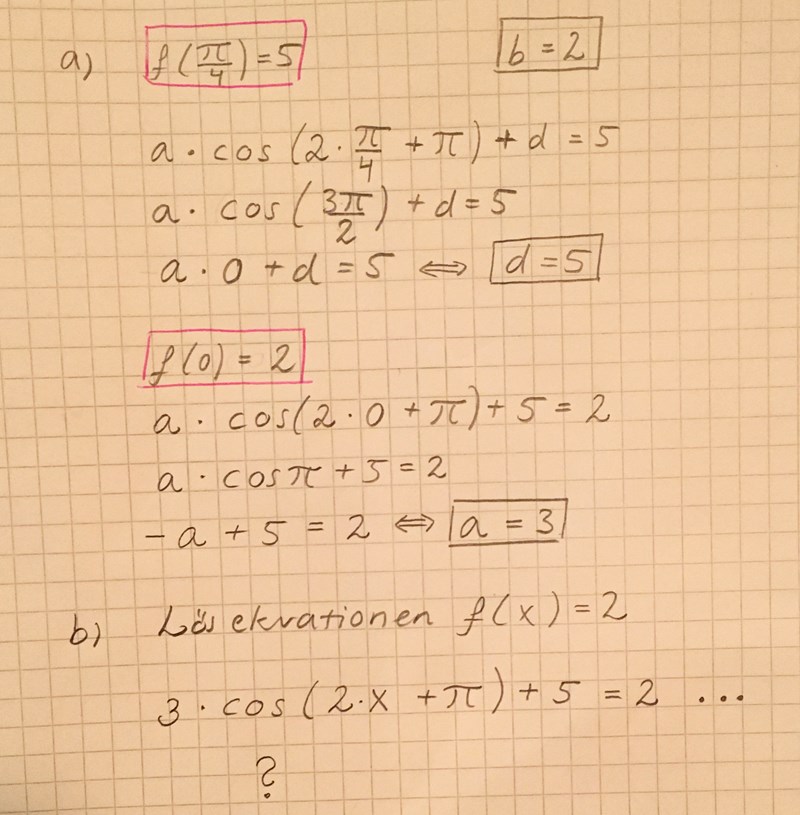 a) f(π/4) = 5 b = 2
a · cos(2 · π/4 + π) + d = 5
a · cos(3π/2) + d = 5
a · 0 + d = 5 ⇔ d = 5
f(0) = 2
a · cos(2 · 0 + π) + 5 = 2
a · cosπ + 5 = 2
- a + 5 = 2 ⇔ a = 3
b) Lös ekvationen f(x) = 2
3 · cos(2·x + π) + 5 = 2 ...
?